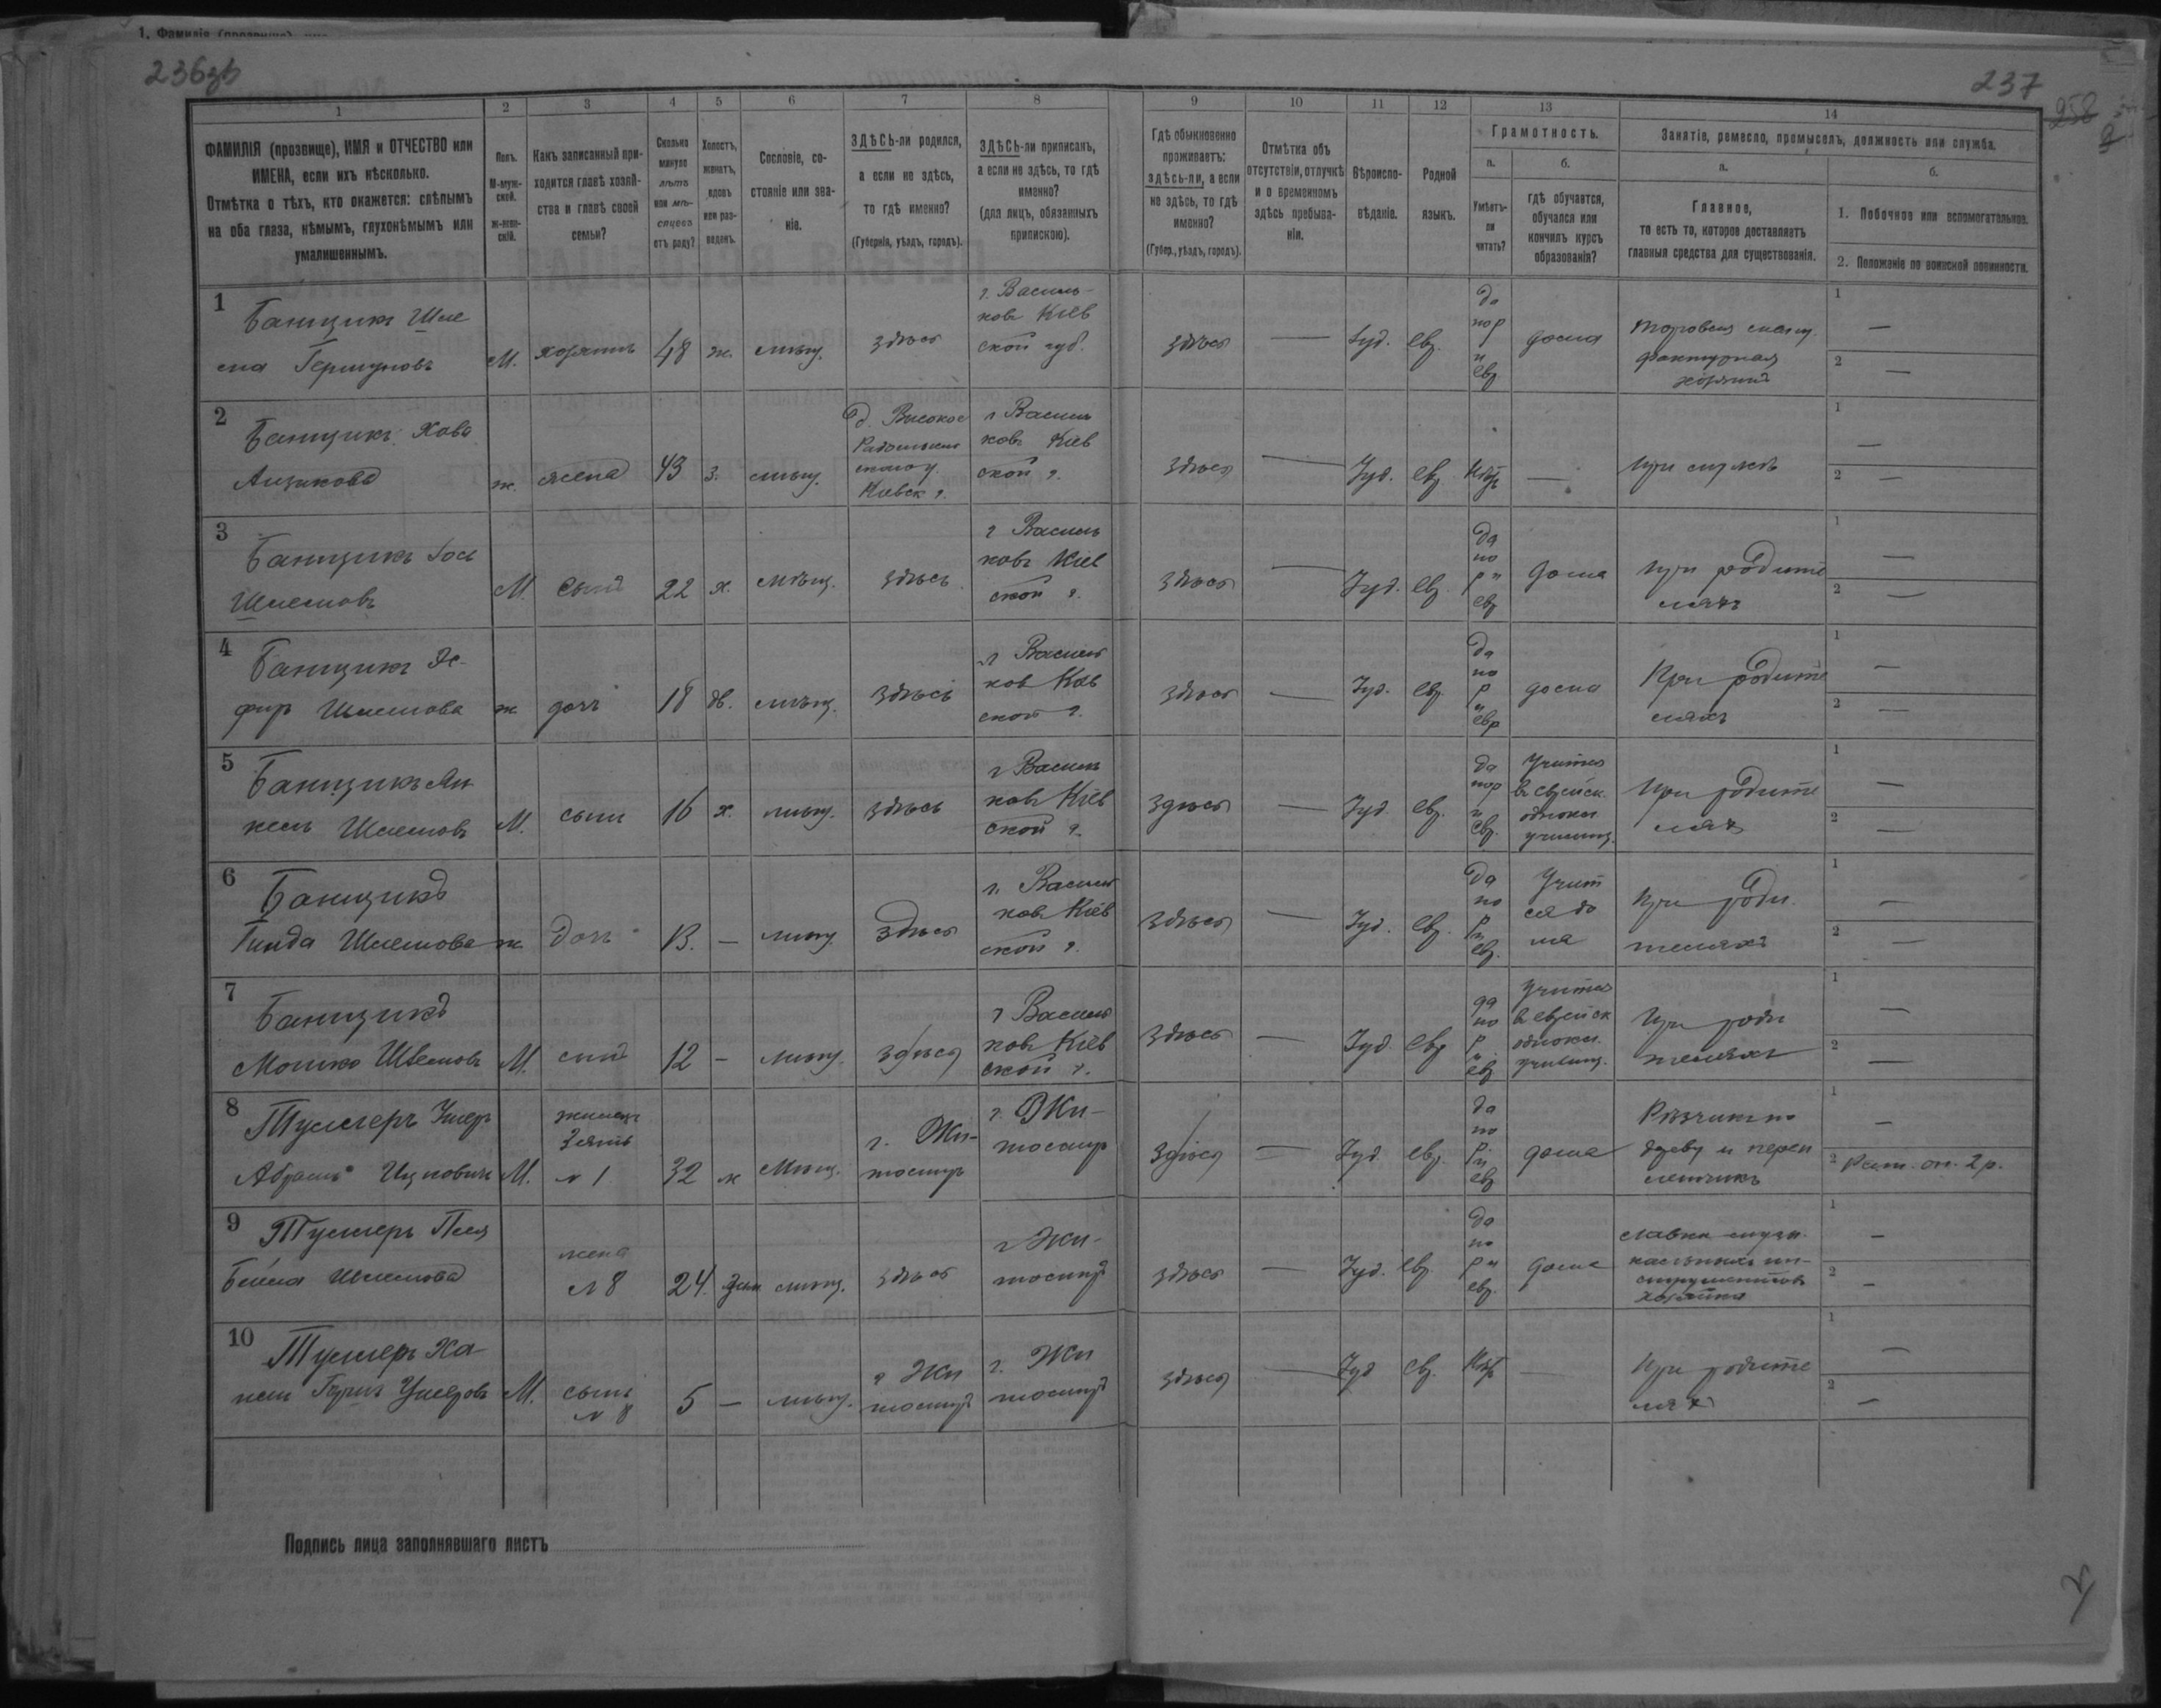 236зв
237
258
1
2
3
4
5
6
7
8
9
10
11
12
13
14
ФАМИЛІЯ (прозвище), ИМЯ и ОТЧЕСТВО или
ИМЕНА, если ихъ нѣсколько.
Отмѣтка о тѣхъ, кто окажется: слѣпымъ
на оба глаза, нѣмымъ, глухонѣмымъ или
умалишеннымъ.
Полъ.
М-муж-
ской.
Ж-жен-
скій.
Какъ записанный при-
ходится главѣ хозяй-
ства и главѣ своей
семьи?
Сколько
минуло
лѣтъ
или мѣ-
сяцевъ
отъ роду?
Холостъ,
женатъ,
вдовъ
или раз-
веденъ.
Сословіе, со-
стояніе или зва-
ніе.
ЗДѢСЬ-ли родился,
а если не здѣсь,
то гдѣ именно?
(Губернія, уѣздъ, городъ).
ЗДѢСЬ-ли приписанъ,
а если не здѣсь, то гдѣ
именно?
(для лицъ, обязанныхъ
припискою).
Гдѣ обыкновенно
проживаетъ:
здѣсь-ли, а если
не здѣсь, то гдѣ
именно?
(Губер., уѣздъ, городъ).
Отмѣтка объ
отсутствіи, отлучкѣ
и о временномъ
здѣсь пребыва-
ніи.
Вѣроиспо-
вѣданіе.
Родной
языкъ.
Грамотность.
а.
Умѣетъ-
ли
читать?
б.
гдѣ обучается,
обучался или
кончилъ курсъ
образованія?
Занятіе, ремесло, промыселъ, должность или служба.
а.
Главное,
то есть то, которое доставляетъ
главныя средства для существованія.
б.
1. Побочное или вспомогательное.
2. Положеніе по воинской повинности.
1
Банщикъ Шле
ма Герщуновъ
М.
хозяинъ
48
ж.
мѣщ.
здѣсь
г. Василь-
ковъ Кіев
ской губ.
здѣсь
—
Іуд.
евр.
да
по р
и
евр
дома
торговля
мануфактурная
хозяинъ
1 —
2 —
2
Банщикъ Хава
Айзикова
ж.
жена
43
з.
мѣщ.
д. Высокое
Радомысль
скаго у.
Кіевск г.
г Василь
ковъ Кіев
ской г.
здѣсь
—
Іуд.
евр.
Нѣтъ
—
при мужѣ
1 —
2 —
3
Банщикъ Іось
Шлемовъ
М.
сынъ
22
х.
мѣщ.
здѣсь
г Василь
ковъ Кіев
ской г.
здѣсь
—
Іуд.
евр.
да
по
р и
евр
дома
при родите
ляхъ
1 —
2 —
4
Банщикъ Эс-
фирь Шлемова
ж
дочь
18
дв.
мѣщ.
здѣсь
г Василь
ков Кіев
ской г.
здѣсь
—
Іуд.
евр.
да
по
р
и
евр
дома
При родите
ляхъ
1 —
2 —
5
Банщикъ Ян
кель Шлемовъ
М.
сынъ
16
х.
мѣщ.
здѣсь
г Василь
ковъ Кіев
ской г.
здѣсь
—
Іуд.
евр.
да
по р
и
евр.
Учится
в еврейск.
однокл
училищ.
При родите
ляхъ
1 —
2 —
6
Банщикъ
Гинда Шлемова
ж
дочь
13.
—
мѣщ.
здѣсь
г. Василь
ковъ Кіев
ской г.
здѣсь
—
Іуд.
евр.
да
по
р
и
евр.
Учит
ся до
ма
При роди
теляхъ
1 —
2 —
7
Банщикъ
Мошко Шлемовъ
М.
сынъ
12
—
мѣщ.
здѣся
г Василь
ковъ Кіев
ской г.
здѣсь
—
Іуд
евр
да
по
р
и
евр
Учится
в еврейск
однокл.
училищ.
При роди
теляхъ
1 —
2 —
8
Туллеръ Ушеръ
Абрамъ Ицковичъ
М.
жилецъ
Зять
№ 1
32
ж
Мѣщ.
г. Жи-
томиръ
г. Жи-
томиръ
здѣся
—
Іуд.
евр.
да
по
р.
и
евр
дома
Рѣзчикъ по
дереву и переп
летчикъ
1 —
2 Рат. оп. 2 р.
9
Туллеръ Песя
Бейла Шлемова
жена
№ 8
24.
зам
мѣщ.
здѣсь
г Жи-
томиръ
здѣсь
—
Іуд.
евр.
да
по
р и
евр.
дома
лавка музы
кальныхъ ин-
струментовъ
хозяйка
1 —
2 —
10
Туллеръ Ха-
Ушеровъ
М.
сынъ
№ 8
5
—
мѣщ.
г Жи
томиръ
г. Жи
томиръ
здѣся
—
Іуд
евр.
Нѣтъ
—
При родите
ляхъ
1 —
2 —
Подпись лица заполнявшаго листъ